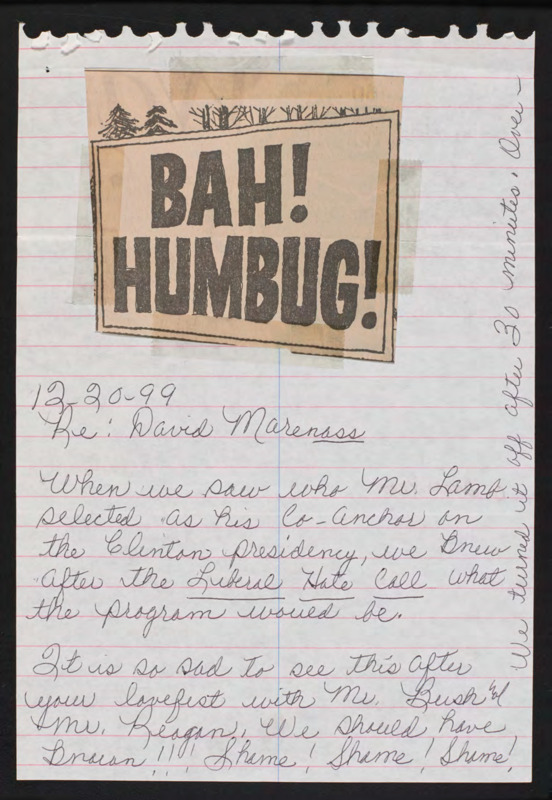 BAH!
HUMBUG!
12-20-99
Re: David Marenass
When we saw who Mr. Lamb
selected as his Co-anchor on
the Clinton presidency, we knew
after the Liberal Hate Call what
the program would be.
It is so sad to see this after
your lovefest with Mr. Bush &
Mr. Reagan. We should have
known!!! Shame! Shame! Shame!
We turned it off after 30 minutes. Over-